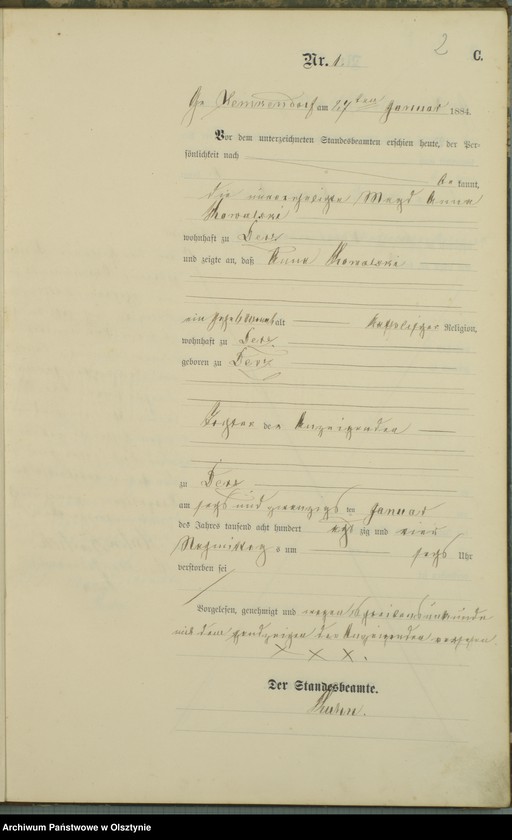 2
C.
Nr. 1.
Gr. am 27ten Januar 1884.
Vor dem unterzeichneten Standesbeamten erschien heute, der Per-
sönlichkeit nach
be kannt,
die unverehelichte Magd Anna
Kowalski
wohnhaft zu Derz
und zeigte an, daß Anna Kowalski
ein alt katholischer Religion,
wohnhaft zu Derz
geboren zu Derz
Tochter der Anzeigenden
zu Derz
am sechs und zwanzigsten Januar
des Jahres tausend acht hundert acht zig und vier
Nachmittags um sechs Uhr
verstorben sei
Vorgelesen, genehmigt und wegen Schreibensunkunde
mit dem Handzeichen der Anzeigenden versehen.
X X X.
Der Standesbeamte.
Archiwum Państwowe w Olsztynie